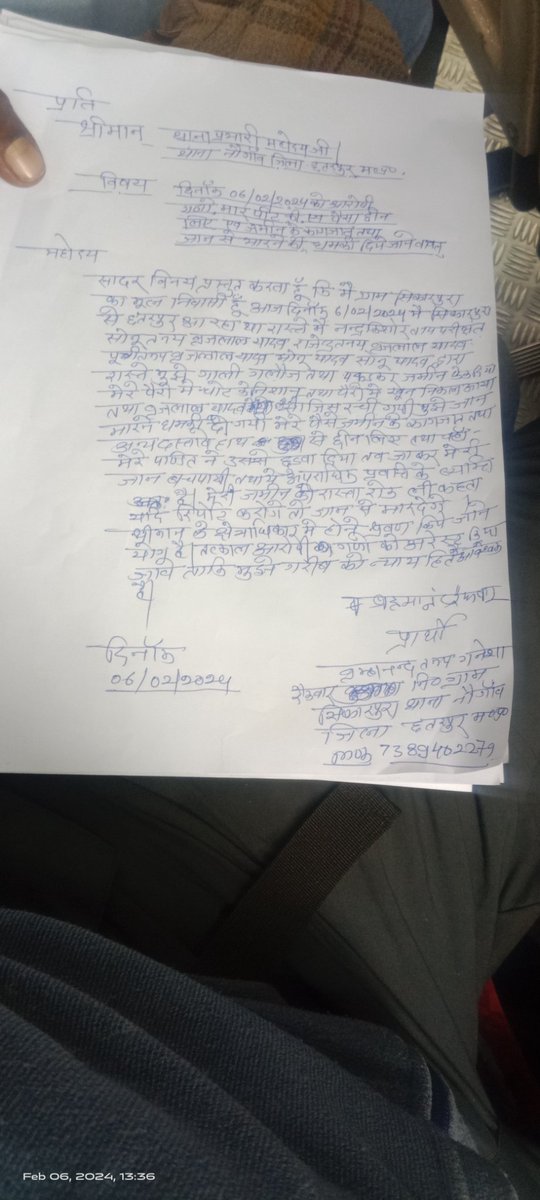 प्रति
श्रीमान् थाना प्रभारी महोदय जी
थाना नौगाँव जिला छतरपुर म०प्र०.
विषय दिनाँक 06/02/2024 को आरोपी
गाली, मार पीट से एवं पैसा छीन
लिए एवं जमीन के कागजात तथा
जान से मारने की धमकी दिये जाने वावत्
महोदय
सादर विनय प्रस्तुत करता हूँ कि मैं ग्राम सिकारपुरा
का मूल निवासी हूँ आज दिनाँक 6/02/2024 में सिकारपुरा
से छतरपुर आ रहा था रास्ते में नन्दकिशोर
सोनू तनय बृजलाल यादव राजेन्द्र तनय बृजलाल यादव
बृजलाल यादव सोनू यादव द्वारा
रास्ते मुझे गाली गलौज तथा पकड़कर जमीन
मेरे पैरों में चोट के निशान तथा पैरों में खून निकल आया
तथा बृजलाल यादव मुझे जान
मारने धमकी दी गयी मेरे पैसे जमीन के कागजात तथा
अन्य दस्तावेज हाथ से छीन लिए तथा
मेरे उनसे छुड़वा दिया तब जाकर मेरी
जान बच पायी आपराधिक प्रवत्ति के व्यक्ति
है। मेरी जमीन का रास्ता रोक कहता
यदि रिपोर्ट करोगे तो जान से मार देंगे।
श्रीमान के क्षेत्राधिकार में होने श्रवण किये जाने
योग्य है। तत्काल आरोपी गणों को
जावे ताकि मुझे गरीब को न्याय हित
है
प्रार्थी
दिनाँक
06/02/2024
तनय गनेशा
रैकवार नि० ग्राम
सिकारपुरा थाना नौगाँव
जिला छतरपुर म०प्र०
मो० 7389462279
Feb 06, 2024, 13:36